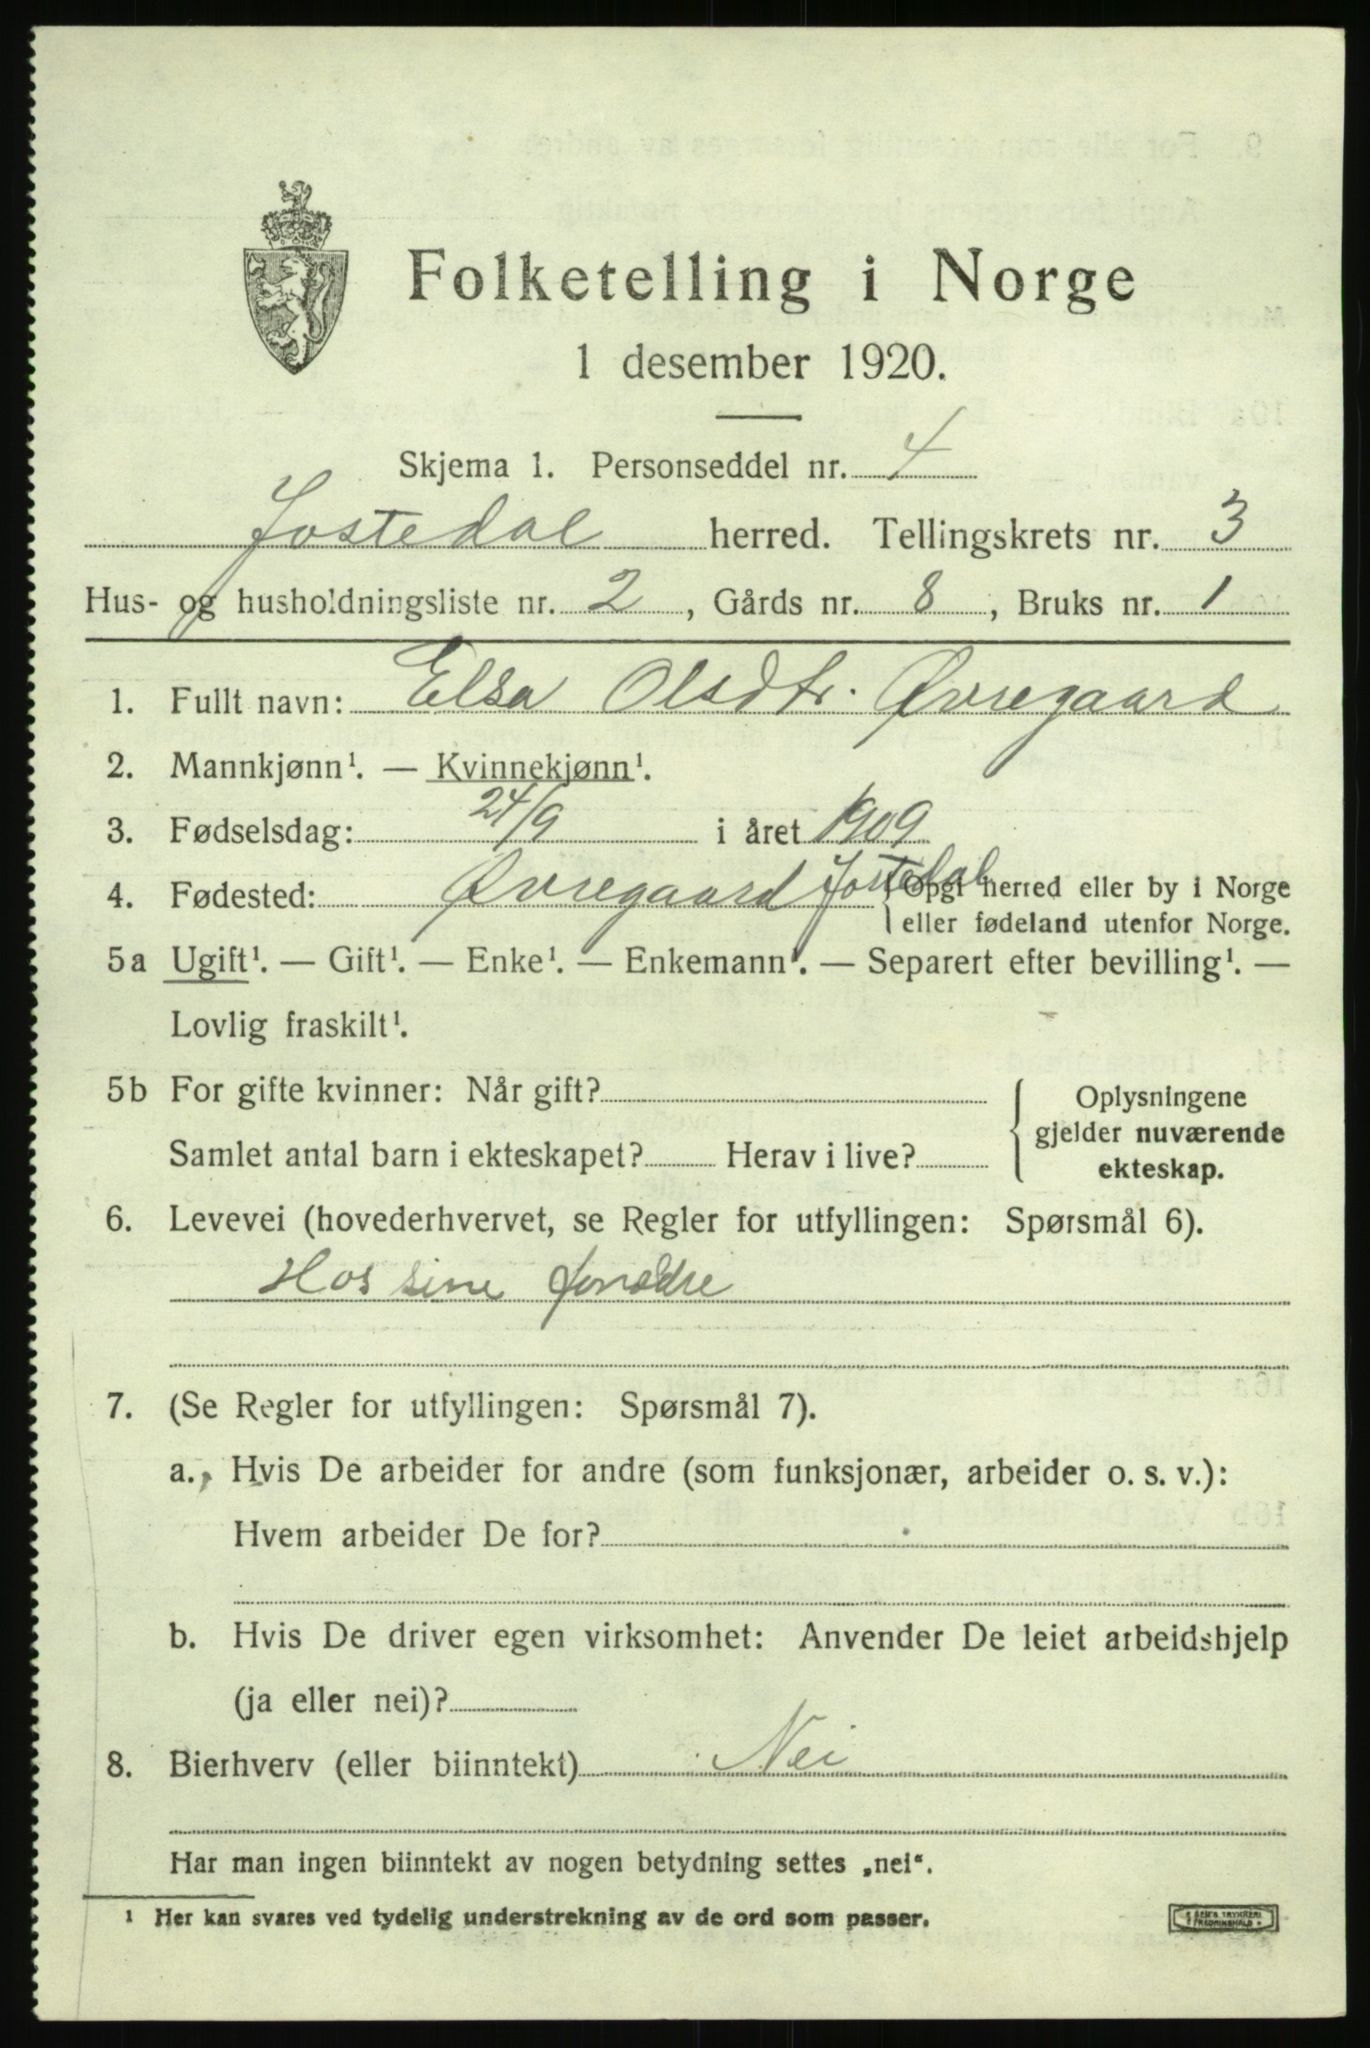 Folketelling i Norge
1 desember 1920.
Skjema 1. Personseddel nr. 4
Jostedal herred. Tellingskrets nr. 3
Hus- og husholdningsliste nr. 2, Gårds nr. 8, Bruks nr. 1
1. Fullt navn: Elsa Olsdtr. Øvregaard
2. Mannkjønn¹. — Kvinnekjønn¹.
3. Fødselsdag: 24/9 i året 1909
4. Fødested: Øvregaard Jostedal {Opgi herred eller by i Norge
eller fødeland utenfor Norge.
5a Ugift¹. — Gift¹. — Enke¹. — Enkemann¹. — Separert efter bevilling¹. —
Lovlig fraskilt¹.
5b For gifte kvinner: Når gift?
Samlet antal barn i ekteskapet? Herav i live?
{ Oplysningene
gjelder nuværende
ekteskap.
6. Levevei (hovederhvervet, se Regler for utfyllingen: Spørsmål 6).
Hos sine forældre
7. (Se Regler for utfyllingen: Spørsmål 7).
a. Hvis De arbeider for andre (som funksjonær, arbeider o. s. v.):
Hvem arbeider De for?
b. Hvis De driver egen virksomhet: Anvender De leiet arbeidshjelp
(ja eller nei)?
8. Bierhverv (eller biinntekt) Nei
Har man ingen biinntekt av nogen betydning settes „nei“.
¹ Her kan svares ved tydelig understrekning av de ord som passer.